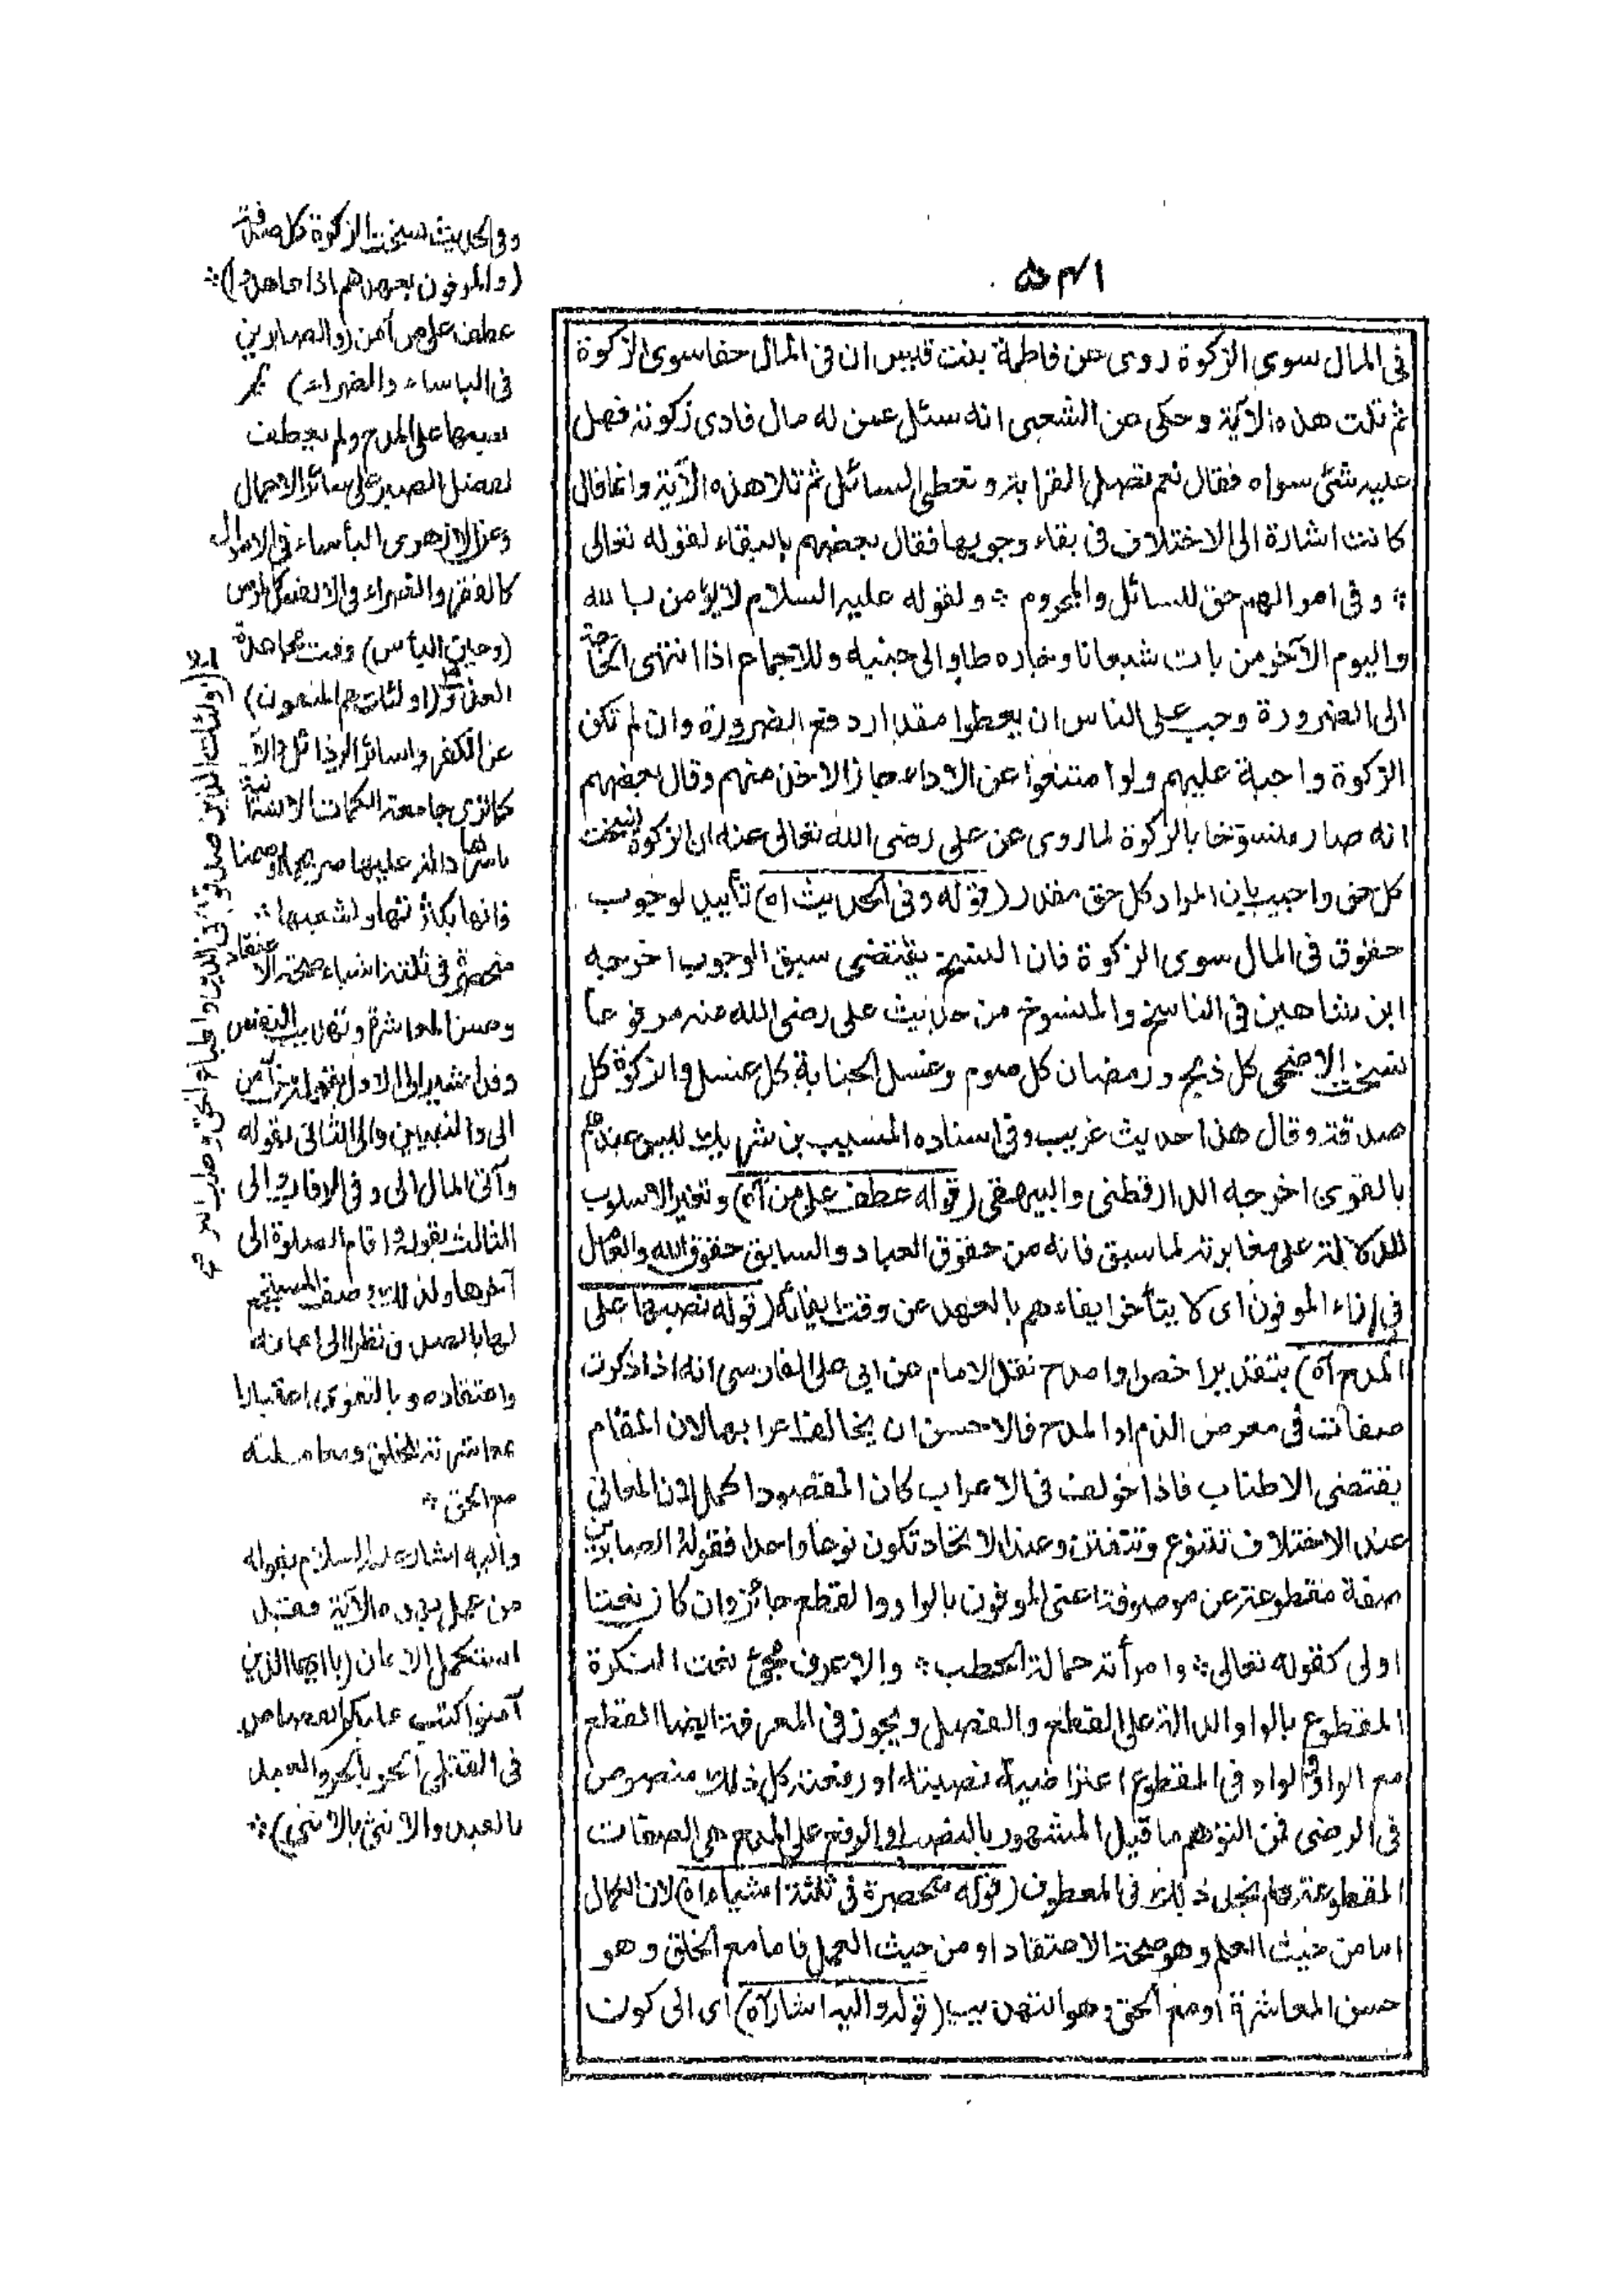 ٥٤١
في المال سوى الزكوة روى عن فاطمة بنت قيس ان فى المال حقا سوى الزكوة
ثم تلت هذه الآية وحكى عن الشعبى انه سئل عمن له مال فادى زكوته فهل
عليه شئ سواه فقال نعم تصل القرابة وتعطى السائل ثم تلا هذه الآية وانما قال
كانت اشارة الى الاختلاف فى بقاء وجوبها فقال بعضهم بالبقاء لقوله تعالى
* وفى اموالهم حق للسائل والمحروم * ولقوله عليه السلام لا يؤمن بالله
واليوم الآخر من بات شبعانا وجاره طاو الى جنبه وللاجماع اذا انتهى الحاجة
الى الضرورة وجب على الناس ان يعطوا مقدار دفع الضرورة وان لم تكن
الزكوة واجبة عليهم ولو امتنعوا عن الاداء جاز الاخذ منهم وقال بعضهم
انه صار منسوخا بالزكوة لما روى عن على رضى الله تعالى عنه ان الزكوة نسخت
كل حق واجيب بان المراد كل حق مقدر (قوله وفى الحديث اه) تأييد لوجوب
حقوق فى المال سوى الزكوة فان النسخ يقتضى سبق الوجوب اخرجه
ابن شاهين فى الناسخ والمنسوخ من حديث على رضى الله عنه مرفوعا
نسخت الاضحى كل ذبح ورمضان كل صوم وغسل الجنابة كل غسل والزكوة كل
صدقة وقال هذا حديث غريب وفى اسناده المسيب بن شريك ليس عندهم
بالقوى اخرجه الدارقطنى والبيهقى (قوله عطف على من آه) وتغير الاسلوب
للدلالة على مغايرته لما سبق فانه من حقوق العباد والسابق حقوق الله والعمال
فى ايفاء الموفون اى لا يتأخر ايفاءهم بالعهد عن وقت ايفائه (قوله نصبها على
المدح آه) بتقدير اخص او امدح نقل الامام عن ابى على الفارسى انه اذا ذكرت
صفات فى معرض الذم او المدح فالاحسن ان يخالف اعرابها لان المقام
يقتضى الاطناب فاذا خولف فى الاعراب كان المقصود اكمل لان المعانى
عند الاختلاف تتنوع وتتفنن وعند الاتحاد تكون نوعا واحدا فقوله الصابرين
صفة مقطوعة عن موصوفة اعنى الموفون بالواو والقطع جائز وان كان نعتا
اولى كقوله تعالى * وامرأته حمالة الحطب * والاعرف مجئ نعت النكرة
المقطوع بالواو الدالة على القطع والفصل ويجوز فى المعرفة ايضا القطع
مع الواو والواو فى المقطوع اعتراضية نصبته او رفعته كل ذلك منصوص
فى الرضى فمن التوهم ما قيل المشهور بالنصب او الرفع على المدح هى الصفات
المقطوعة ولم نجد ذلك فى المعطوف (قوله منحصرة فى ثلثة اشياء اه) لان الكمال
اما من حيث العلم وهو صحة الاعتقاد او من حيث العمل فاما مع الخلق وهو
حسن المعاشرة او مع الحق وهو التهذيب (قوله واليه اشار آه) اى الى كون
وفى الحديث نسخت الزكوة كل صدقة
(والموفون بعهدهم اذا عاهدوا) *
عطف على من آمن (والصابرين
فى البأساء والضراء)
نصبها على المدح ولم يعطف
لفضل الصبر على سائر الاعمال
وعن الازهرى البأساء فى الاموال
كالفقر والضراء فى الانفس كالمرض
(وحين البأس) وقت مجاهدة
العدو (اولئك هم المتقون)
عن الكفر وسائر الرذائل والآية
كما ترى جامعة للكمالات الانسانية
باسرها دالة عليها صريحا او ضمنا
فانها بكثرتها وتشعبها *
منحصرة فى ثلثة اشياء صحة الاعتقاد
وحسن المعاشرة وتهذيب النفس
وقد اشير الى الاول بقوله من آمن
الى والنبيين والى الثانى بقوله
وآتى المال الى وفى الرقاب والى
الثالث بقوله واقام الصلوة الى
آخرها ولذلك وصف المستجمع
لها بالصدق نظرا الى ايمانه
واعتقاده وبالتقوى اعتبارا
بمعاشرته للخلق ومعاملته
مع الحق *
واليه اشار عليه السلام بقوله
من عمل بهذه الآية فقد
استكمل الايمان (يا ايها الذين
آمنوا كتب عليكم القصاص
فى القتلى الحر بالحر والعبد
بالعبد والانثى بالانثى) *
(اولئك الذين صدقوا) فى الدين واتباع الحق وطلب البر